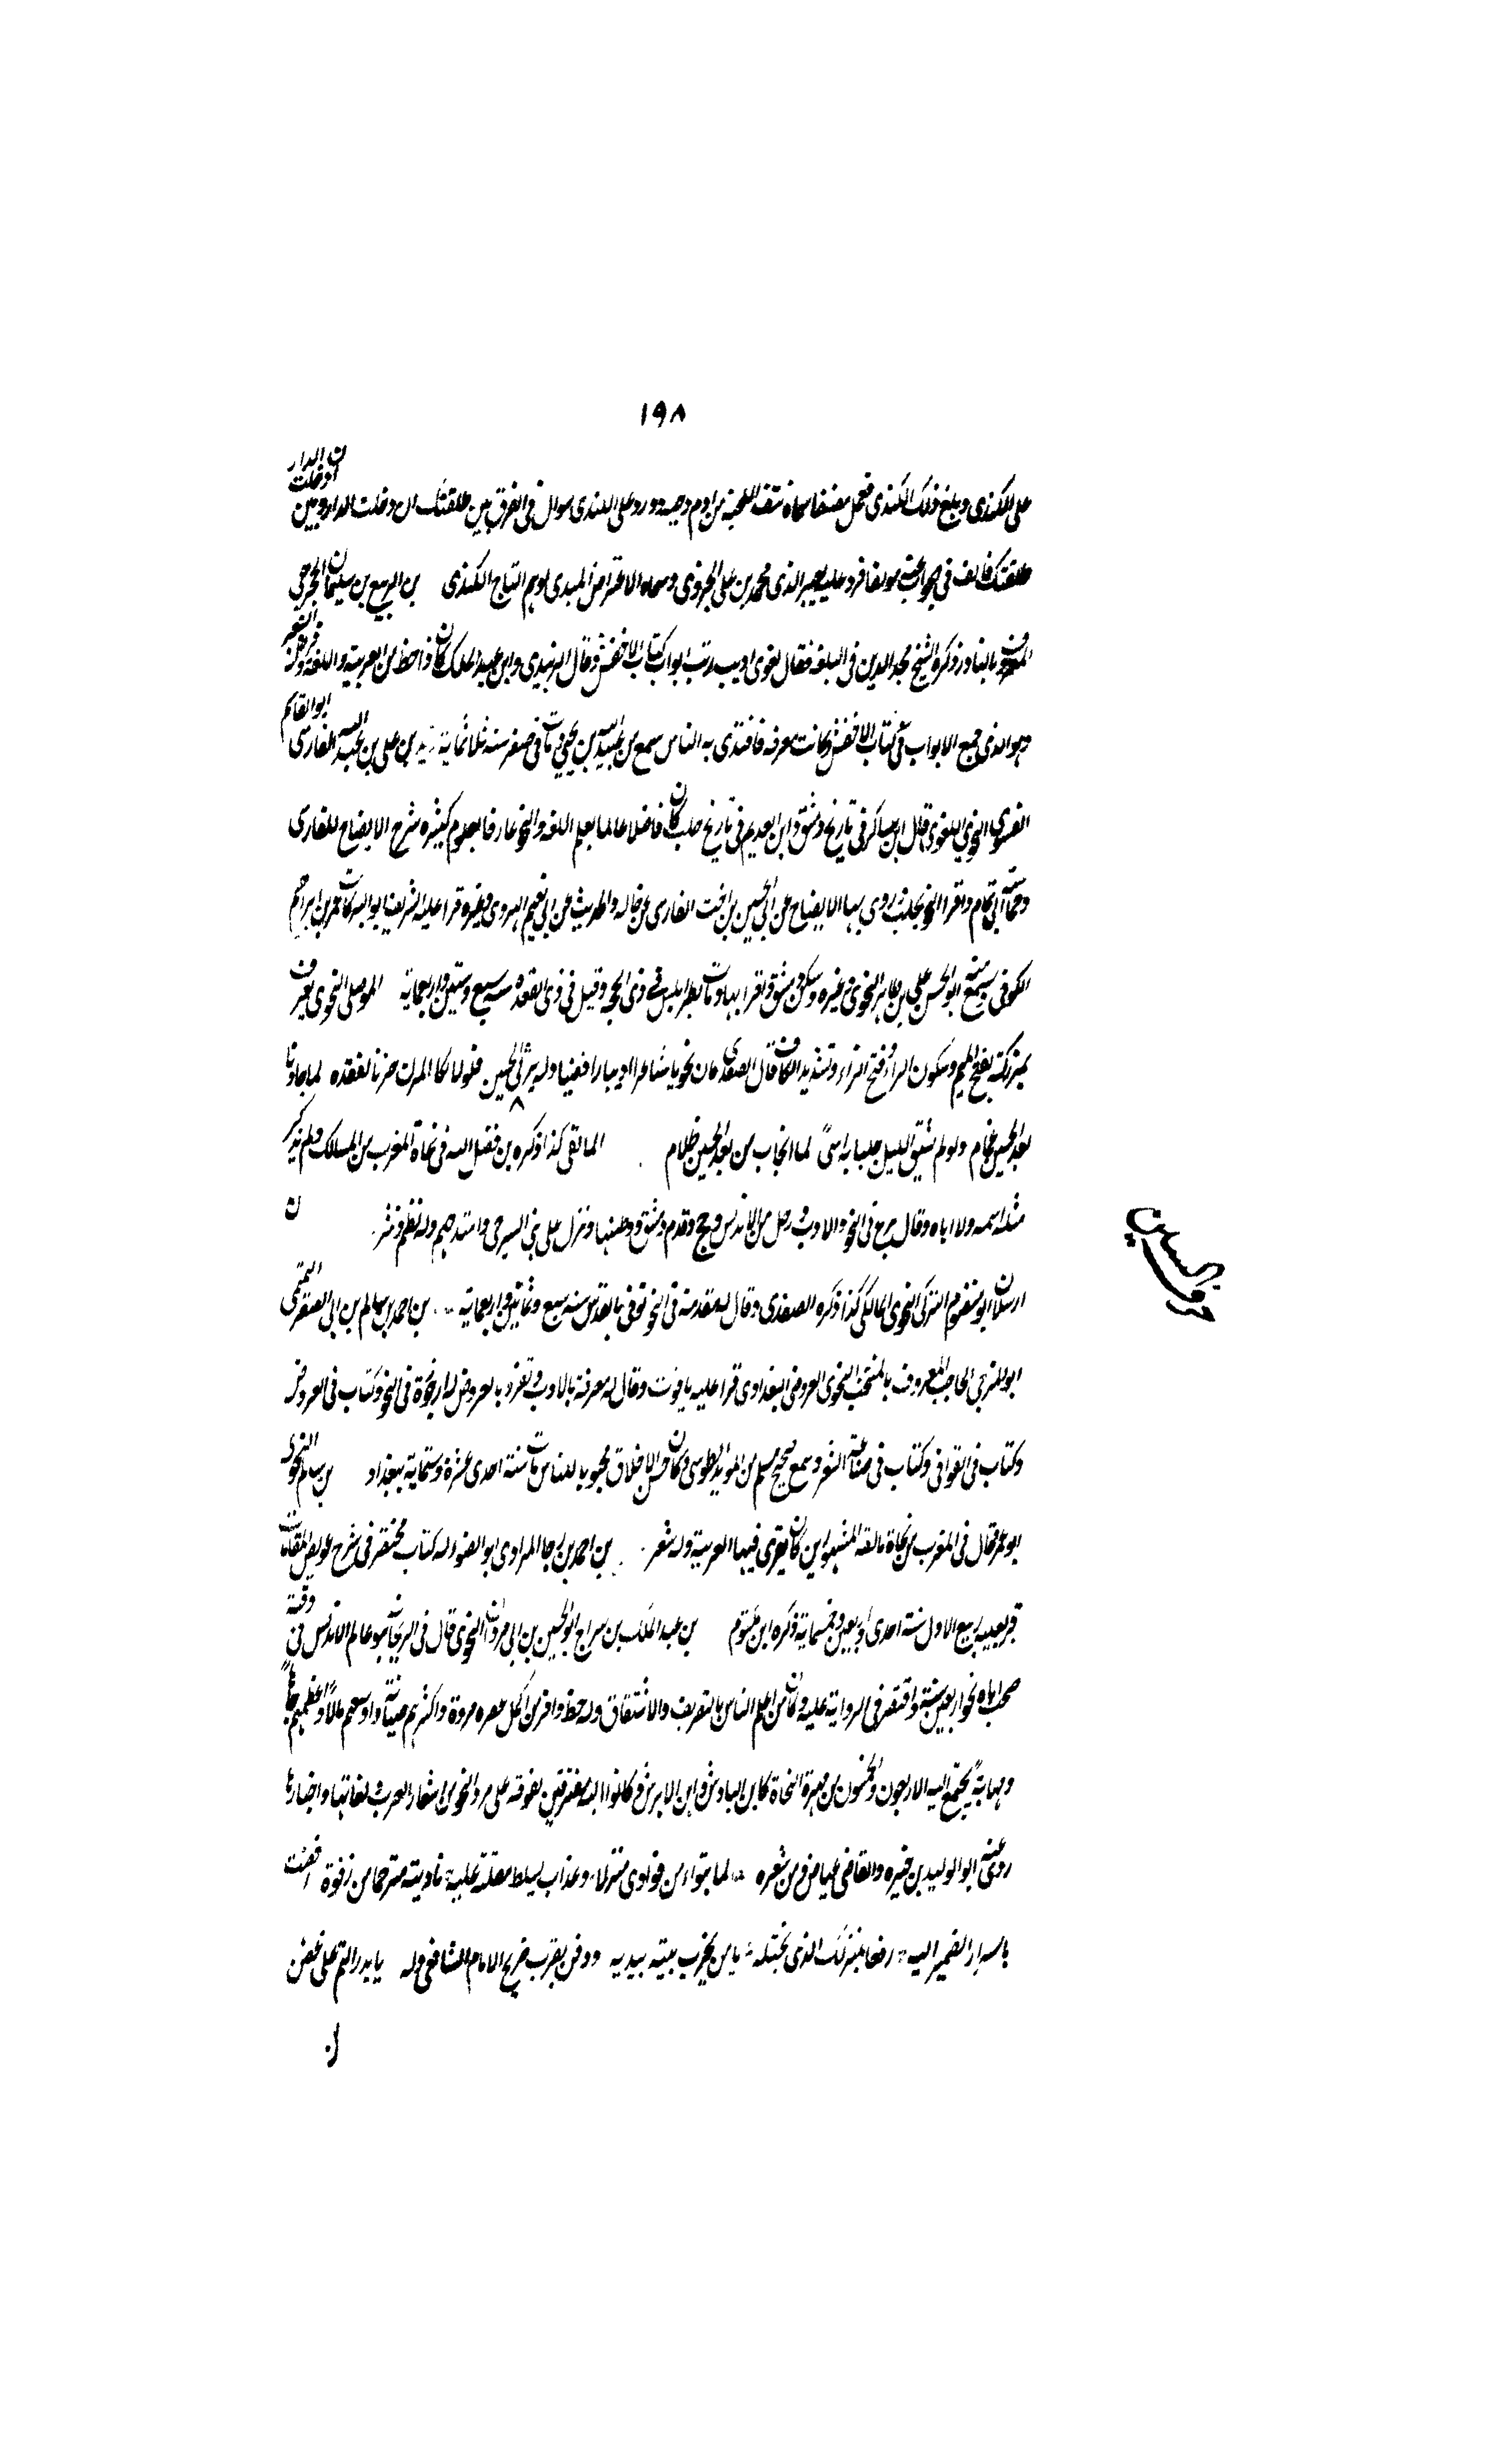 ١٩٨
على الكندى وبلغ ذلك الكندى فعمل مصنفا سماه نتف اللحية من ابن دحية وورد على الكندى سوال فى الفرق بين طلقتك ان دخلت الدار وبين ان دخلت الدار
طلقتك فالف فى جواب مولفا فرد عليه معين الدين محمد بن على الجزرى وسماه الاعتراض المبدى لوهم التاج الكندى بن الربيع بن سليمان الحجرى
المعروف بالبارد ذكره الشيخ مجد الدين فى البلغة فقال لغوى اديب رتب ابواب كتاب الاخفش وقال الزبيدى وابن عبد الملك كان ذا حظ من العربية واللغة وقرض الشعر
وهو الذى جمع الابواب فى كتاب الاخفش وكانت مفرقة فاقتدى به الناس سمع من عبيد الله بن يحيى ومات فى صفر سنة ثلاثماية زيد بن على بن عبد الله الفارسى ابو القاسم
الفسوى النحوى اللغوى قال ابن عساكر فى تاريخ دمشق وابن العديم فى تاريخ حلب كان فاضلا عالما بعلم اللغة والنحو عارفا بعلوم كثيرة شرح الايضاح للفارسى
وحماسة ابى تمام واقرا النحو بحلب وروى بها الايضاح عن ابى الحسين بن اخت الفارسى عن خاله والحديث عن ابى نعيم الهروى وغيره قرا عليه الشريف ابو البركات عمر بن ابراهيم
الكوفى وسمع منه ابو الحسن على بن طاهر النحوى وغيره وسكن دمشق واقرا بها ومات بطرابلس فى ذى الحجة وقيل فى ذى القعدة سنة سبع وستين واربعماية الموصلى النحوى يعرف
بمرزكه بفتح الميم وسكون الراء وفتح الزاء وتشديد الكاف قال الصفدى كان نحويا شاعرا اديبا رافضيا وله يرثى الحسين فلولا بكا المزن حزنا لفقده لما جاءنا
بعد الحسين غمام ولو لم يشق الليل جلبابه اسى لما انجاب من بعد الحسين ظلام المالقى كذا ذكره بن فضل الله فى نحاة المغرب من المسالك ولم يذكر
اسمه ولا اباه وقال برع فى النحو والادب ورحل من الاندلس وحج وقدم دمشق ووطنها ونزل على بنى وامتدحهم وله نظم ونثر
ارسلان ابو منصور التركى النحوى المالكى كذا ذكره الصفدى وقال له مقدمة فى النحو توفى بالقدس سنة سبع وثمانين واربعماية بن احمد بن سالم بن ابى الصقر التميمى
ابو المرجى الحاجب المعروف بالمنتجب النحوى العروضى البغدادى قرا عليه ياقوت وقال له معرفة بالادب وتفرد بالعروض له ارجوزة فى النحو وكتاب فى العروض
وكتاب فى القوافى وكتاب فى صناعة الشعر وسمع صحيح مسلم من المويد الطوسى وكان حسن الاخلاق محبوبا للناس مات سنة احدى عشرة وستماية ببغداد بن سالم النحوى
ابو عمر قال فى المغرب من نحاة مالقة المشهورين كان يقرى فيها العربية وله شعر بن احمد بن المرادى ابو الضوء له كتاب مختصر فى شرح المقامات
ربيع الاول سنة احدى واربعين وخمسماية ذكره ابن مكتوم بن عبد الملك بن سراج ابو الحسين بن ابى مروان النحوى قال فى الريحانة هو عالم الاندلس فى وقته
صحب اباه نحو اربعين سنة واقتصر فى الرواية عليه وكان من اعلم الناس بالتصريف والاشتقاق وله حظ وافر من اكمل عصره مروة واكثرهم صيانة واوسعهم مالا واعظمهم جاها
ومهابة يجتمع اليه الاربعون والخمسون من مهرة النحاة كابن الباذش وابن الابرش وكانوا اليه مفتقرين لفوقه عليهم من اشعار العرب ولغاتها واخبارها
روى عنه ابو الوليد بن خيره والقاضى عياض ومن شعره لما تبوا من فوادى منزلا وغدا يسلط مقلتيه عليه ناديته مترحما من زفرة افضت
باسرار الضمير اليه رفقا بمنزلك الذى تحتله يا من يخرب بيته بيديه ودفن بقرب ضريح الامام الشافعى وله يا بدر التم على غصن